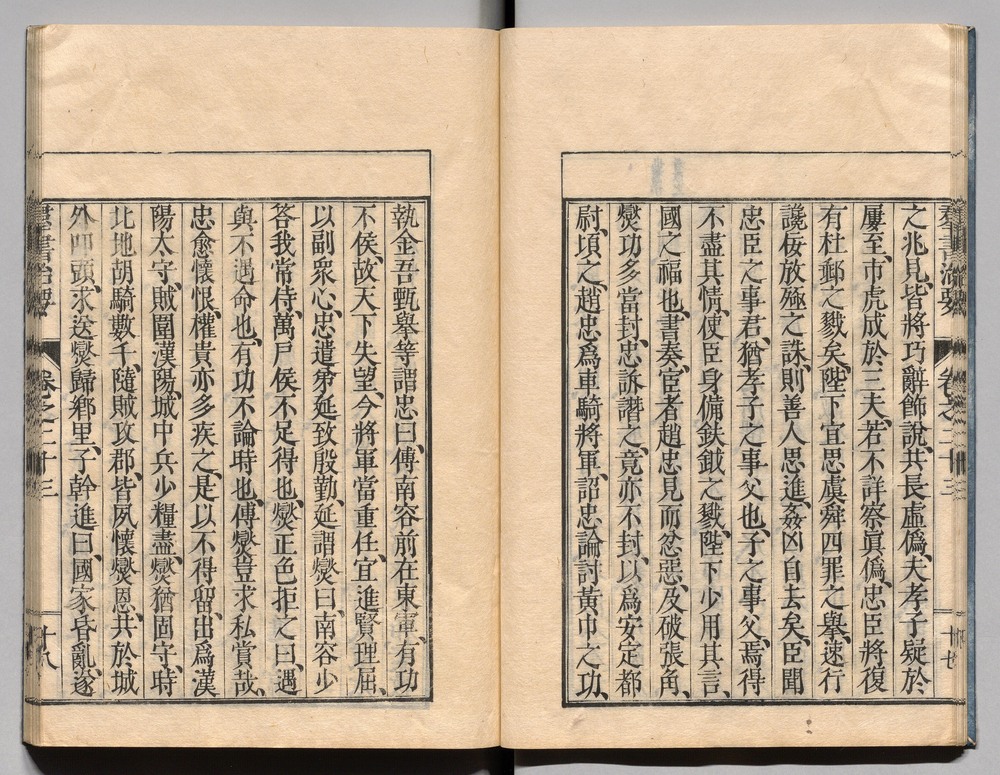 羣書治要 卷之二十三 十七
之兆見、皆將巧辭飾說、共長虛僞、夫孝子疑於
屢至、市虎成於三夫、若不詳察眞僞、忠臣將復
有杜郵之戮矣、陛下宜思虞舜四罪之舉、速行
讒佞放殛之誅、則善人思進、姦凶自去矣、臣聞
忠臣之事君、猶孝子之事父也、子之事父、焉得
不盡其情、使臣身備鈇鉞之戮、陛下少用其言、
國之福也、書奏、宦者趙忠見而忿惡、及破張角、
燮功多當封、忠訴譖之、竟亦不封、以爲安定都
尉、頃之、趙忠爲車騎將軍、詔忠論討黃巾之功、
執金吾甄舉等謂忠曰、傳南容前在東軍、有功
不侯、故天下失望、今將軍當重任、宜進賢理屈、
以副衆心、忠遣弟延致殷勤、延謂燮曰、南容少
答我常侍、萬戶侯不足得也、燮正色拒之曰、遇
與不遇命也、有功不論時也、傅燮豈求私賞哉、
忠愈懷恨、權貴亦多疾之、是以不得留、出爲漢
陽太守、賊圍漢陽、城中兵少糧盡、燮猶固守、時
北地胡騎數千、隨賊攻郡、皆夙懷燮恩、共於城
外叩頭、求送燮歸鄉里、子幹進曰、國家昏亂、遂
羣書治要 卷之二十三 十八